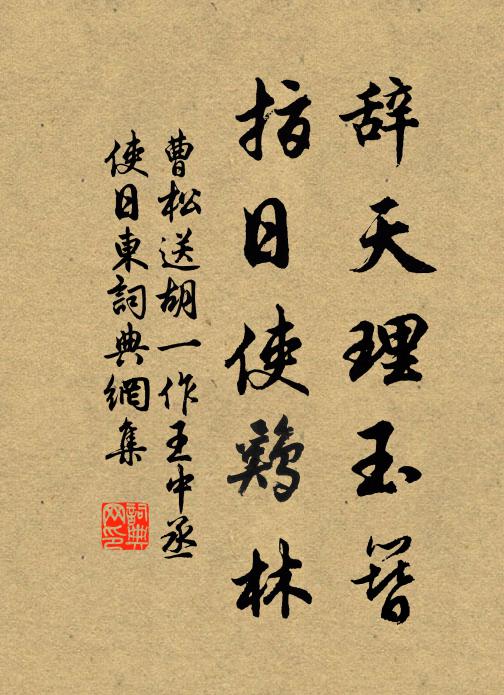 辞天理玉簪
指日使鷄林
曹松送胡一作王中丞
使日東詞典網集
詞典
网印